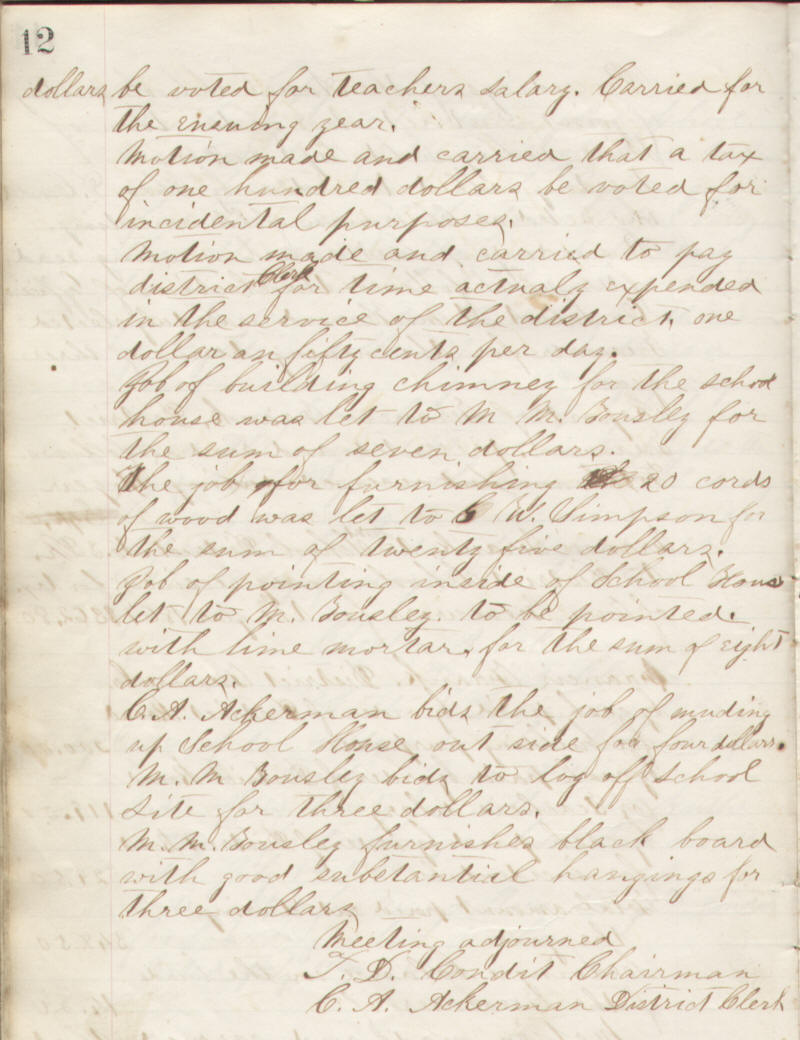 12
dollars be voted for teachers salary. Carried for
the ensuing year.
Motion made and carried that a tax
of one hundred dollars be voted for
incidental purposes.
Motion made and carried to pay
district Clerk for time actualy expended
in the service of the district, one
dollar an fifty cents per day.
Job of building chimney for the school
house was let to M M. Tousley for
the sum of seven dollars.
The job for furnishing 20 cords
of wood was let to C W. Simpson for
the sum of twenty five dollars.
Job of pointing inside of School House
let to M. Tousley. to be pointed.
with lime mortar, for the sum of eight
dollars.
C. A. Ackerman bids the job of muding
up School House out side for four dollars.
M. M Tousley bids to log off school
site for three dollars.
M. M. Tousley furnishes black board
with good substantial hangings for
three dollars
Meeting adjourned
T. D. Condit Chairman
C. A. Ackerman District Clerk